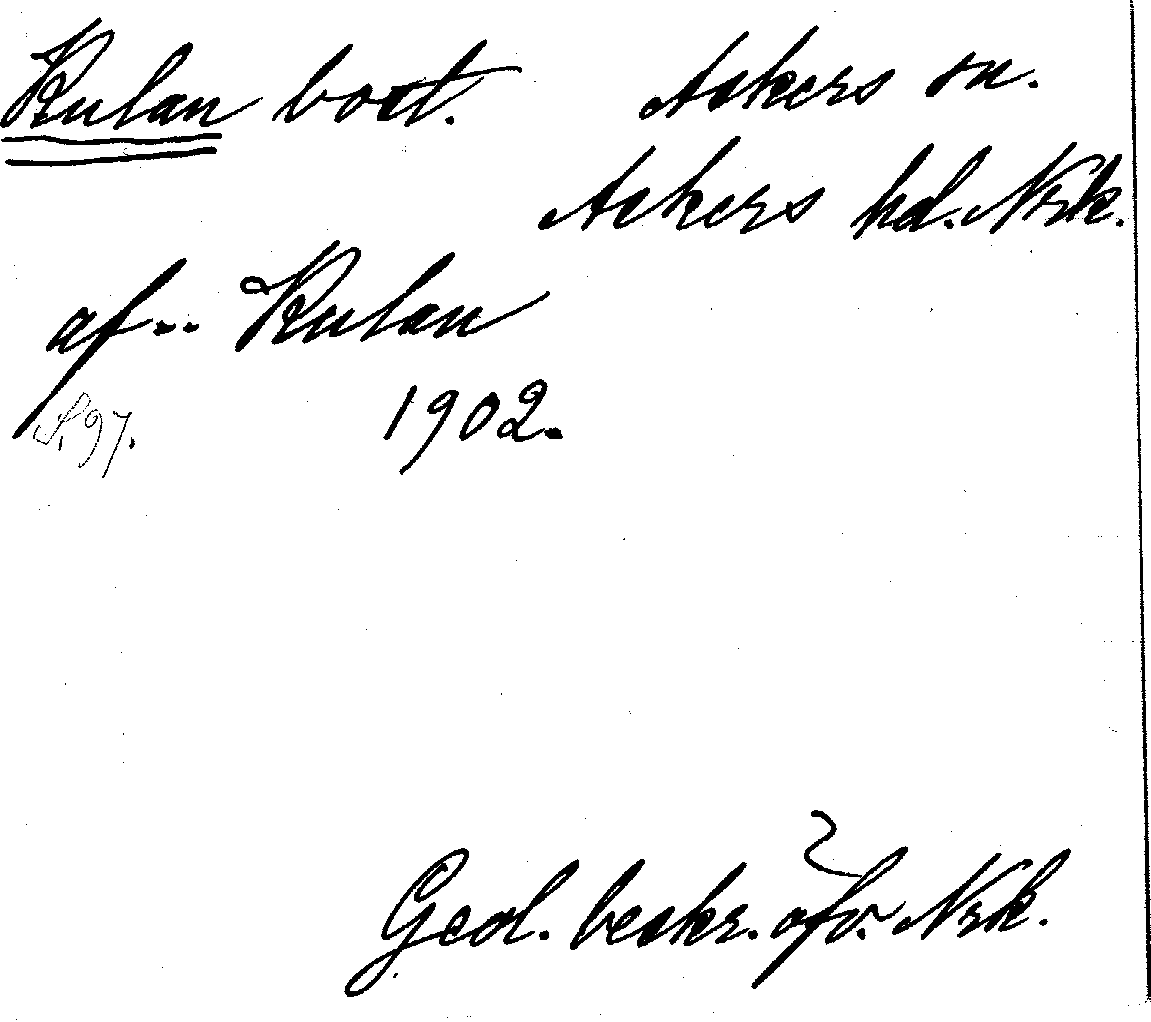 Kulan bost. Askers sn.
Askers hd. Nrk.
af -- Kulan
S. 97. 1902.
Geol. beskr. öfv. Nrk.